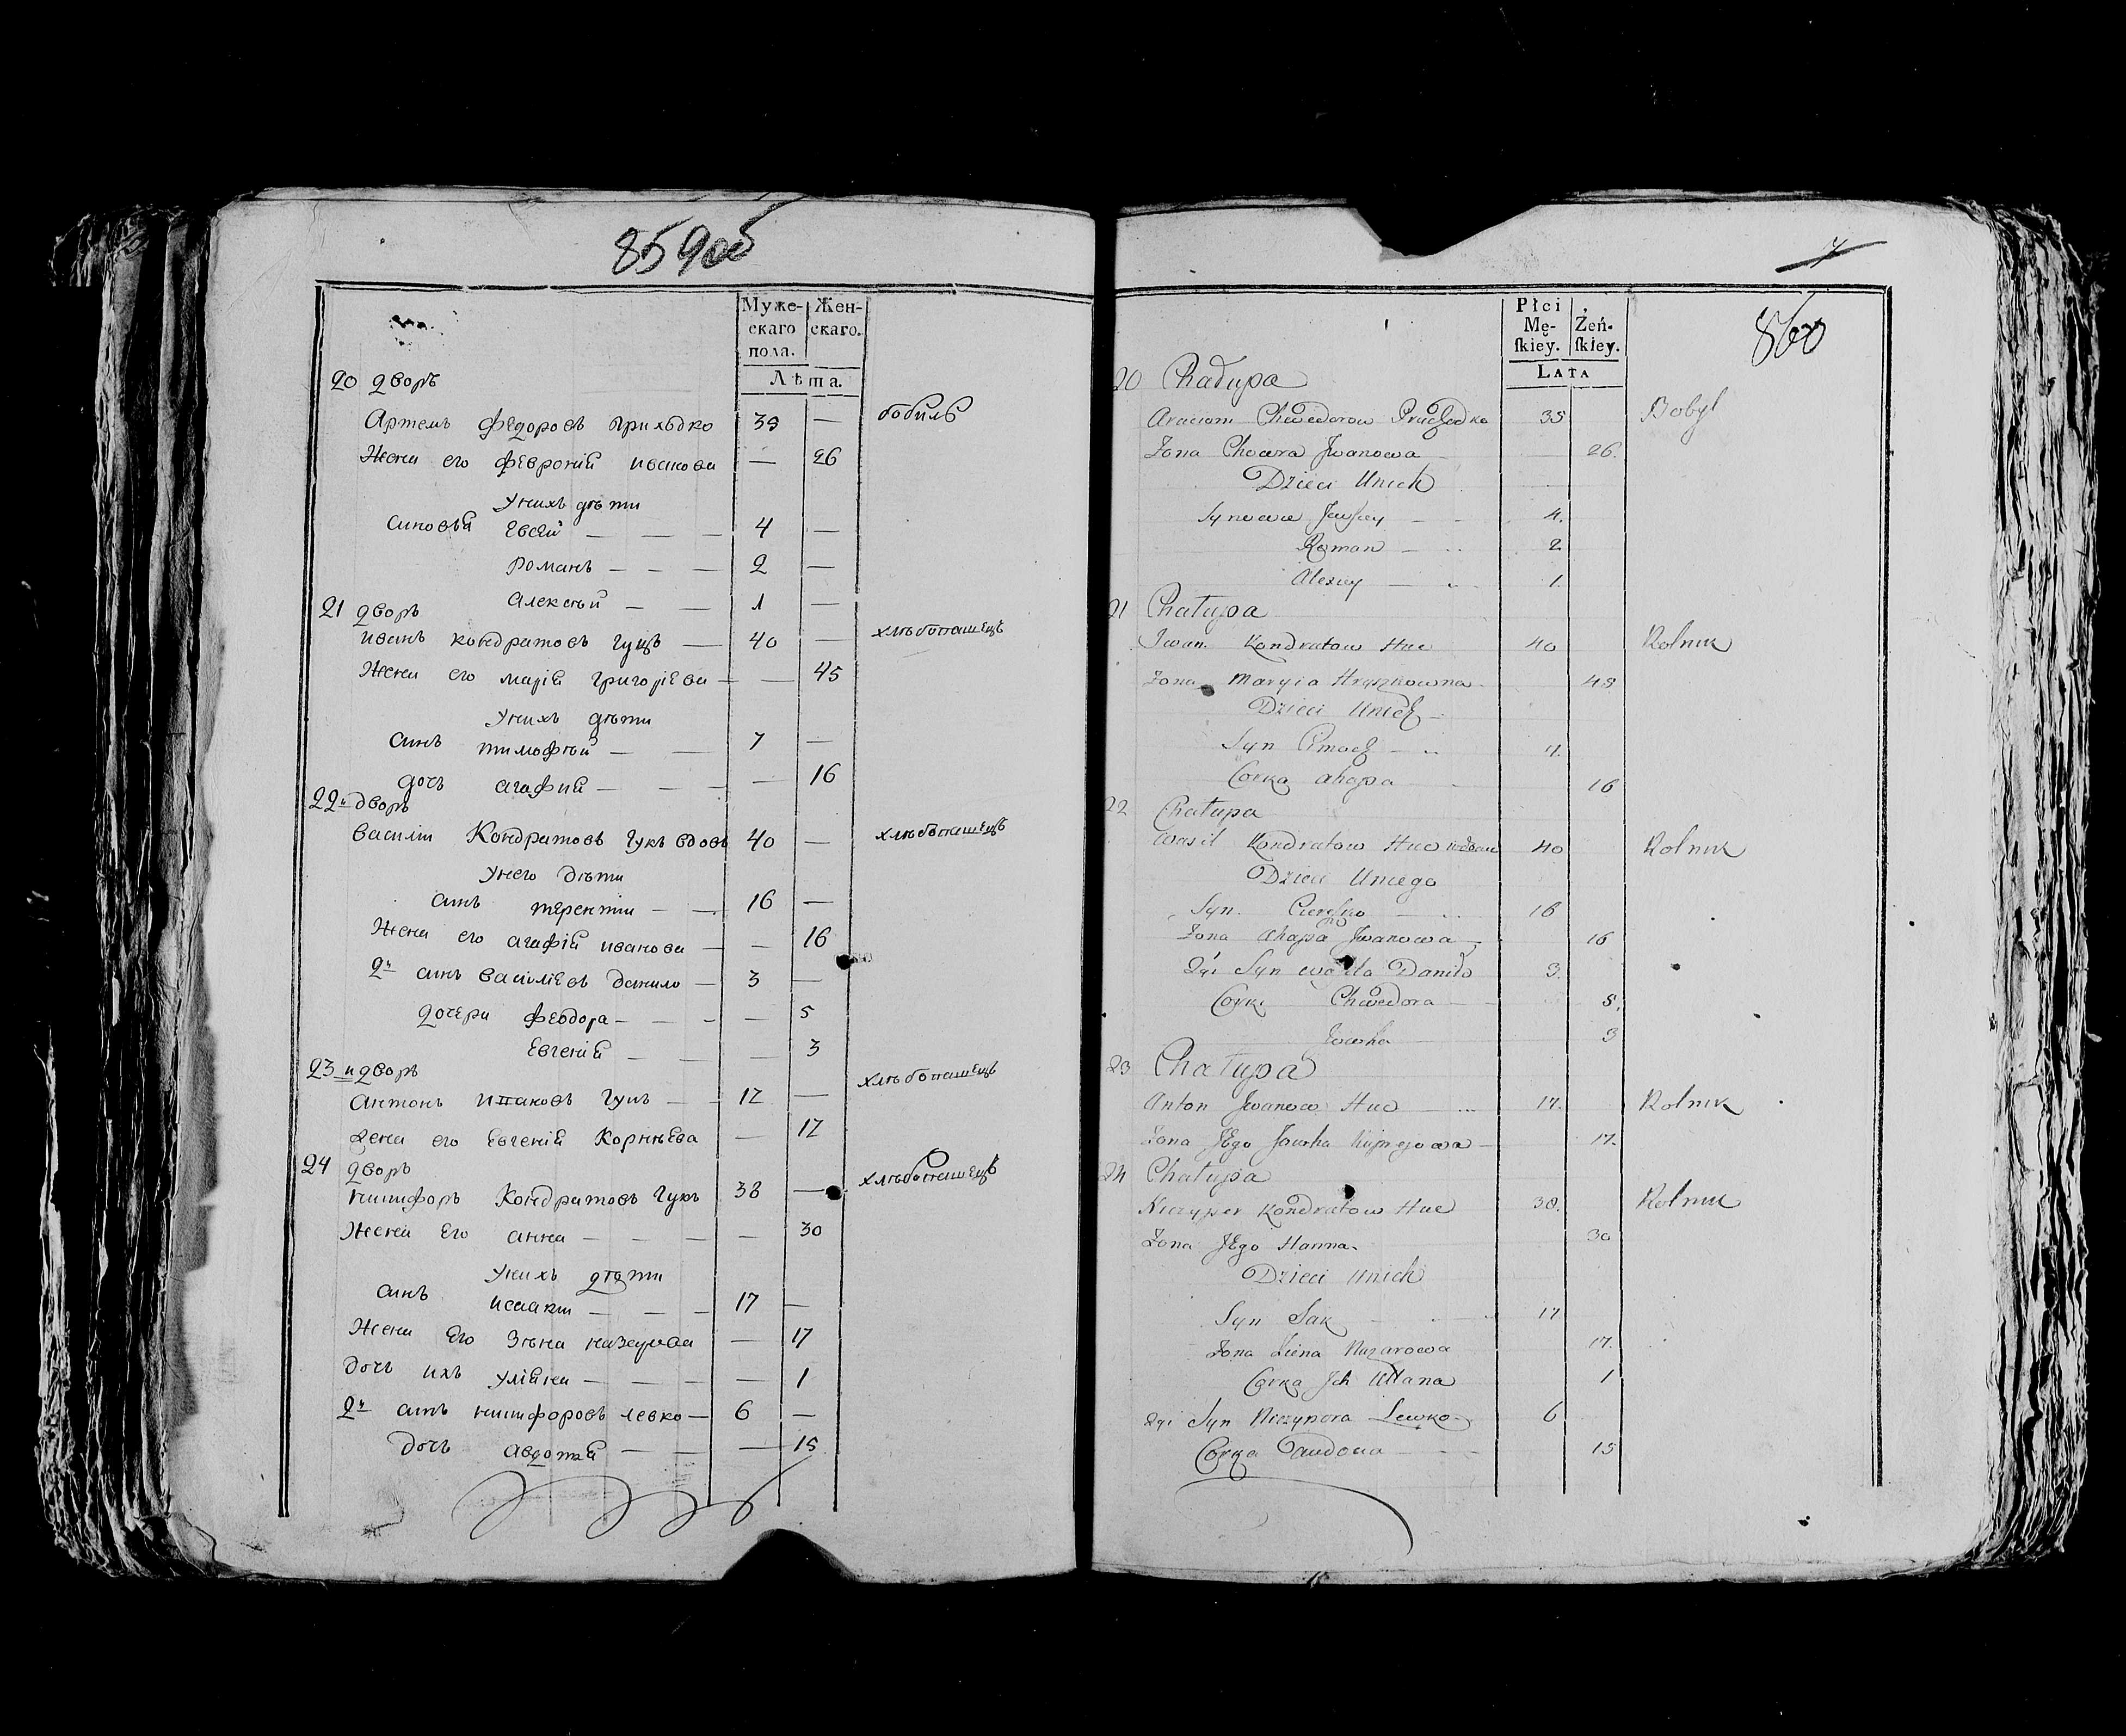 859об
Муже-
скаго
пола.
Жен-
скаго.
Лѣта
20 дворъ
Артемъ Федоровъ Приходко 35 — бобиль
Жена его Феврония иванова — 26
Унихъ дѣти
Синовья Евсей — — — 4 —
Романъ — — — 2 —
Алексѣй — — 1 —
21 дворъ
иванъ Кондратовъ Гуцъ — 40 — хлѣбопашецъ
Жена его мария григориева — — 45
Унихъ дѣти
Синъ тимофѣй — — 7 —
дочь агафия — — — — 16
22й дворъ
василий Кондратовъ Гукъ вдовъ 40 — хлѣбопашецъ
Унего дѣти
Синъ терентии — — 16 —
Жена его агафия иванова — — 16
2й синъ василиевъ данило — 3 —
дочери феодора — — — — 5
Евгения — — — 3
23й дворъ
антонъ Гуцъ — — 17 — хлѣбопашецъ
жена его Евгения Корнѣева — 17
24 дворъ
никифоръ Кондратовъ Гукъ 38 — хлѣбопашецъ
Жена Его анна — — — — 30
Унихъ дѣти
Синъ исаакии — — — 17 —
Жена Его Зѣна назарова — 17
дочь ихъ улияна — — — — 1
2й синъ никифоровъ левко — 6 —
дочь авдотия — — — 15
7
860
Płci
Mę-
skiey.
Żeń-
skiey.
LATA
20 Chałupa
Araciom Chwedorow Prichodko 35 Bobyl
Żona Chowra Jwanowa 26.
Dzieci Unich
Synowie Jewsiey 4.
Roman 2
Alexiey 1.
21 Chałupa
Jwan Kondratow Huc 40 Rolnik
Żona Maryia Hryszkowna 45
Dzieci Unich
Syn Cimoch
Corka ahapa 16
22 Chałupa
Wasil Kondratow Huc wdowiec 40 Rolnik
Dzieci Uniego
Syn Cieresko 16
Żona ahapa Jwanowa 16
2gi Syn Daniło 3.
Corki Chwedora 5.
Jewha 3
23 Chałupa
Anton Jwanow Huc 17. Rolnik
Żona JEgo Jewha 17.
24 Chałupa
Niczyper Kondratow Huc 38. Rolnik
Żona JEgo Hanna. 30
Dzieci Unich
Syn Sak 17
Żona Ziena Nazarowa 17.
Corka Jch Ullana 1
2gi Syn Niczypora Lewko 6
Corka 15